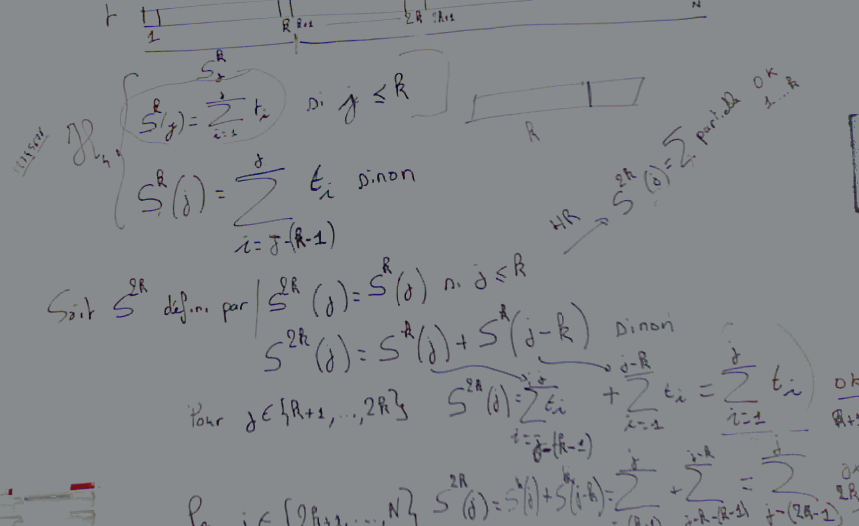 t
1 k k+1 2k 2k+1 N
S_j^k
H_k, S^k(j) = \sum_{i=1}^{j} t_i si j ≤ k
S^k(j) = \sum_{i=j-(k-1)}^{j} t_i sinon
k
HR → S^{2k}(j) = \sum partielle OK 1...k
Soit S^{2k} défini par | S^{2k}(j) = S^k(j) si j ≤ k
S^{2k}(j) = S^k(j) + S^k(j-k) sinon
Pour j ∈ {k+1,...,2k} S^{2k}(j) = \sum_{i=j-(k-1)}^{j} t_i + \sum_{i=1}^{j-k} t_i = \sum_{i=1}^{j} t_i OK k+1
j ∈ {2k+1,...,N} S^{2k}(j) = S^k(j) + S^k(j-k) = \sum^{j} + \sum_{j-k-(k-1)}^{j-k} = \sum_{j-(2k-1)}^{j} 2k